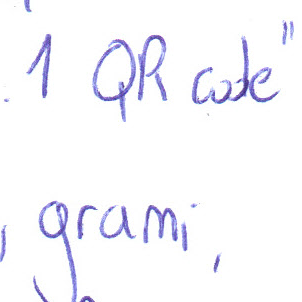 1 QR code"
, grami,